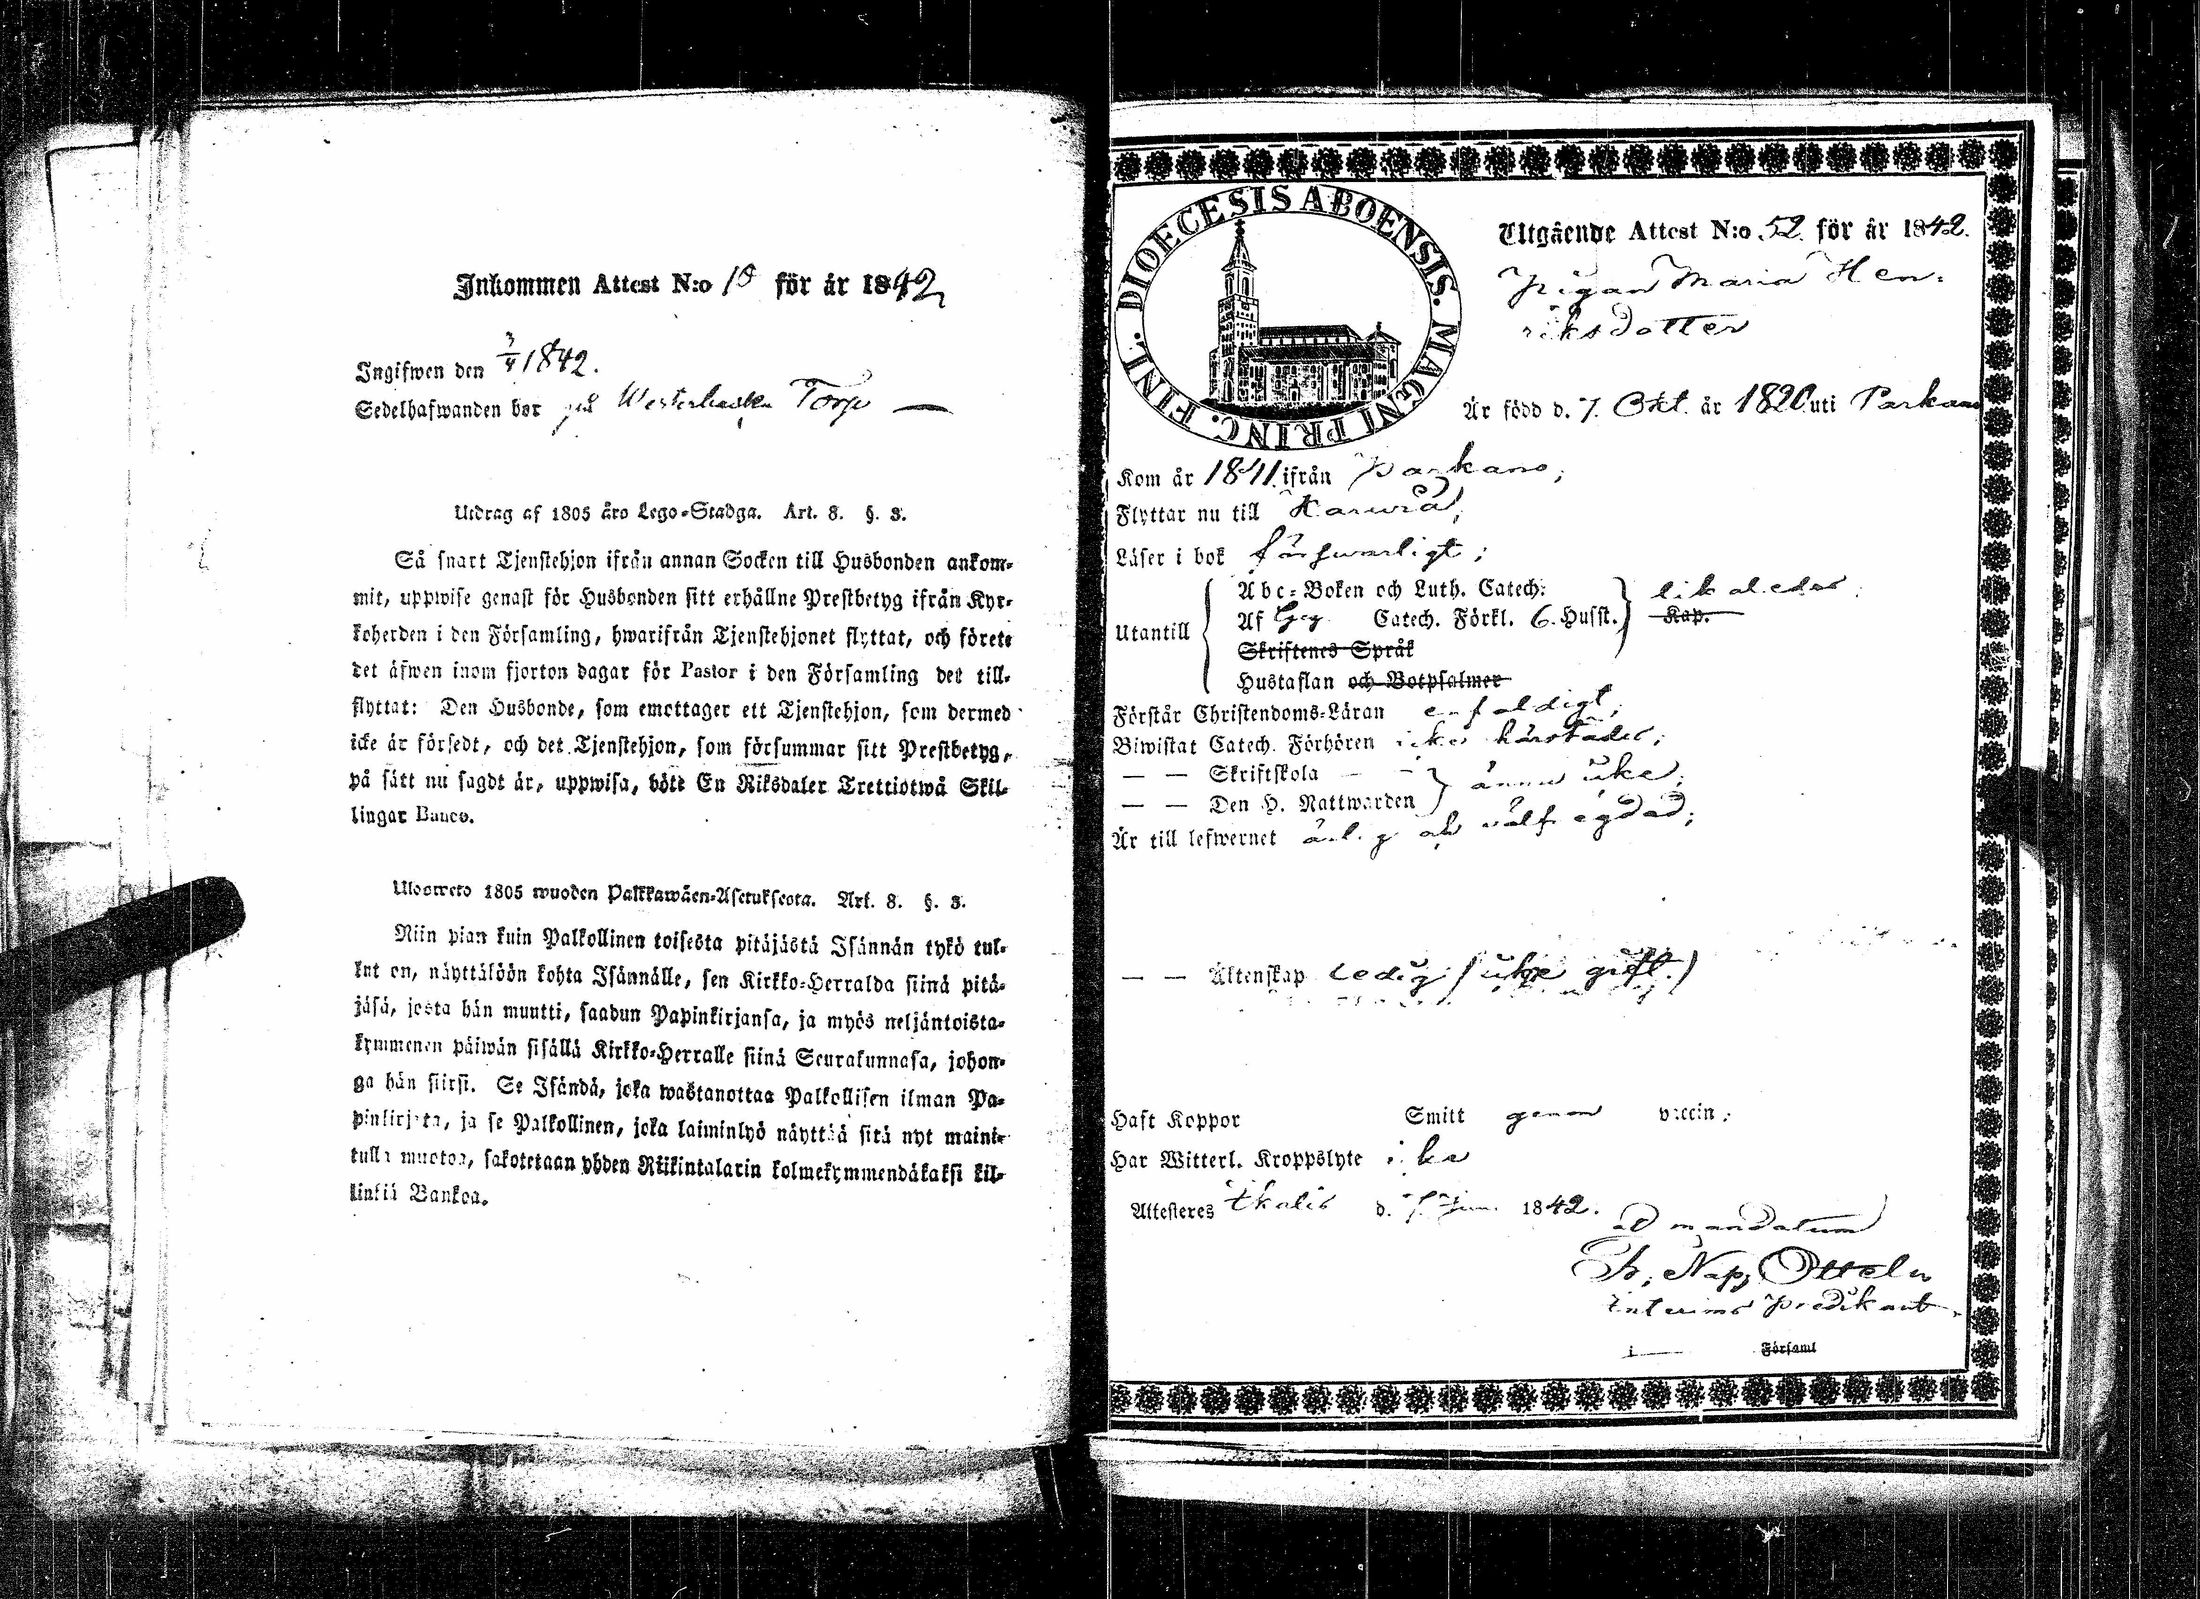 Inkommen Attest N:o 10 för år 1842
Ingifwen den 7/4 1842.
Sedelhafwanden bor på Torp —
Utdrag af 1805 års Lego-Stadga. Art. 8. §. 3.
Så snart Tjenstehjon ifrån annan Socken till Husbonden ankom-
mit, uppwise genast för Husbonden sitt erhållne Prestbetyg ifrån Kyr-
koherden i den Församling, hwarifrån Tjenstehjonet flyttat, och förete
det äfwen inom fjorton dagar för Pastor i den Församling det till-
flyttat: Den Husbonde, som emottager ett Tjenstehjon, som dermed
icke är försedt, och det Tjenstehjon, som försummar sitt Prestbetyg,
på sätt nu sagdt är, uppwisa, böte En Riksdaler Trettiotwå Skil-
lingar Banco.
Ulosweto 1805 wuoden Palkkawäen-Asetuksesta. Art. 8. §. 3.
Niin pian kuin Palkollinen toisesta pitäjästä Isännän tykö tul-
lut on, näyttälöön kohta Isännälle, sen Kirkko-Herralda siinä pitä-
jäsä, josta hän muutti, saadun Papinkirjansa, ja myös neljäntoista-
kymmenen päiwän sisällä Kirkko-Herralle siinä Seurakunnasa, johon-
ga hän siirsi. Se Isändä, joka wastanottaa Palkollisen ilman Pa-
pinkirjata, ja se Palkollinen, joka laiminlyö näyttää sitä nyt maini-
tulla muotoa, sakotetaan yhden Riikintalarin kolmekymmendäkaksi kil-
linkiä Bankoa.
DIOECESIS ABOENSIS. MAGNI PRINC. FINL.
Utgående Attest N:o 52. för år 1842.
Pigan Maria Hen-
riksdotter
Är född d. 7. Okt. år 1820 uti Parkano
Kom år 1841. ifrån Parkano;
Flyttar nu till
Läser i bok försvarligt;
Abc-Boken och Luth. Catech.
Utantill Af Catech. Förkl. 6. Husst. Kap. likaledes;
Skriftenes Språk
Hustaflan och Botpsalmer
Förstår Christendoms-Läran enfaldigt;
Biwistat Catech. Förhören icke härstädes;
— — Skriftskola — — ännu icke;
— — Den H. Nattwarden
Är till lefwernet ärlig och välfrägdad;
— — Äktenskap Ledig (icke gift.)
Haft Koppor Smitt genom vaccin;
Har Witterl. Kroppslyte icke
Attesteres Ikalis d. 7. 1842.
ad mandatum
Nap. Ottelin
interims predikant.
i Församl